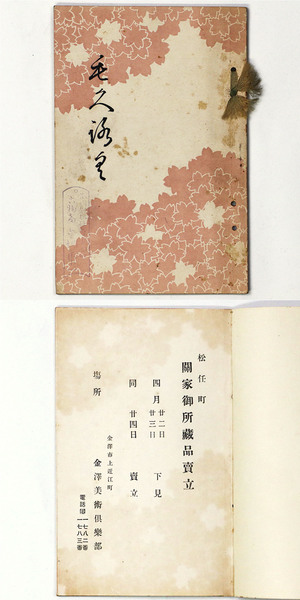 毛久録
松任町
關家御所藏品賣立
四月 廿二日 廿三日 下見
同 廿四日 賣立
塲所
金澤市上近江町
金澤美術倶樂部
電話 一七八二番 一七八三番